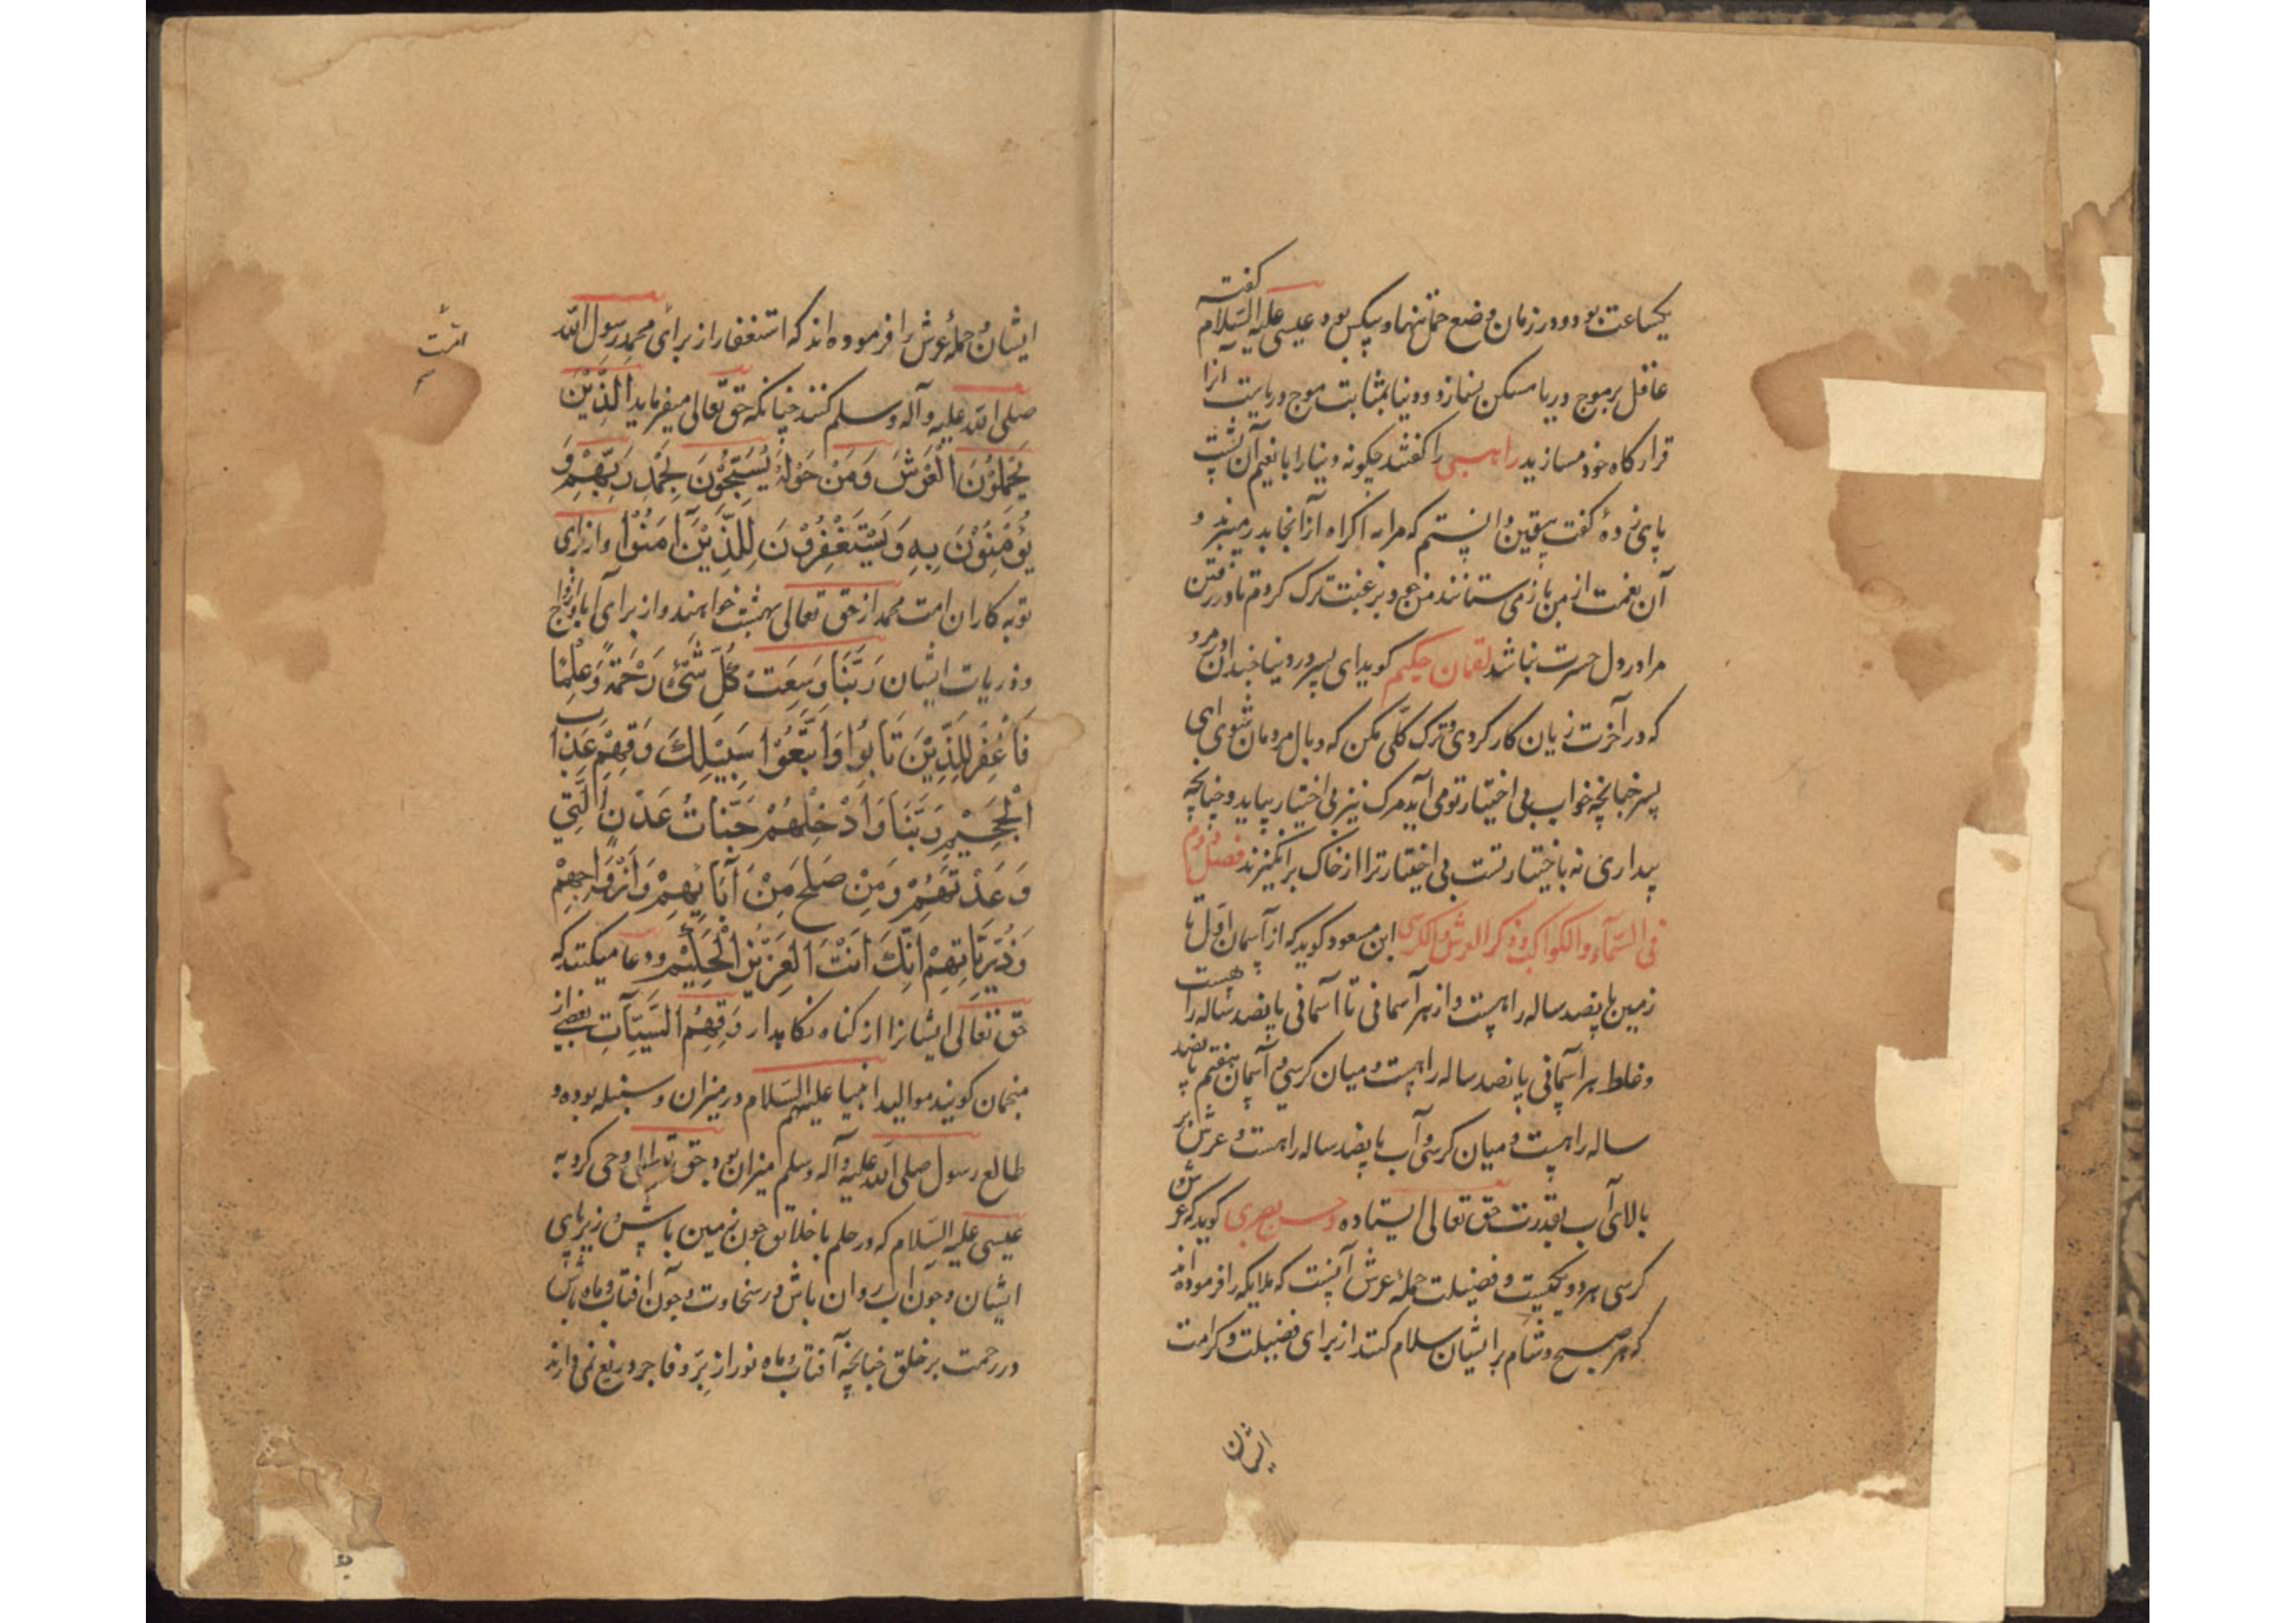 یکساعت بود و در زمان وضع حمل تنها و بیکس بود عیسی علیه السلام گفته
عاقل بر موج دریا مسکن نسازد و دنیا بمثابت موج دریاست آنرا
قرارگاه خود مسازید راهبی را گفتند چگونه دنیا را با نعیم آن پشت
پای زدهٔ گفت بیقین دانستم که مرا به اکراه از آنجا بدر میبرند و
آن نعمت از من باز می ستانند من هم و برغبت ترک کردم تا در رفتن
مرا در دل حسرت نباشد لقمان حکیم گوید ای پسر در دنیا چندان مرو
که در آخرت زیان کار گردی و ترک کلی مکن که وبال مردمان شوی ای
پسر چنانچه خواب بی اختیار تو می آید مرگ نیز بی اختیار بیاید و چنانچه
بیداری نه باختیار تست بی اختیار ترا از خاک برانگیزند فصل دوم
فی السماء والکواکب و ذکر العرش والکرسی ابن مسعود گوید که از آسمان اول تا
زمین پانصد ساله راهست و از هر آسمانی تا آسمانی پانصد ساله راهست
و غلظ هر آسمانی پانصد ساله راهست و میان کرسی و آسمان هفتم پانصد
ساله راهست و میان کرسی و آب پانصد ساله راهست و عرش بر
بالای آب بقدرت حق تعالی ایستاده و حسن بصری گوید که عرش و
کرسی هر دو یکیست و فضیلت حملهٔ عرش آنست که ملایکه را فرموده اند
که هر صبح و شام بر ایشان سلام کنند از برای فضیلت و کرامت
ایشان
ایشان و حملهٔ عرش را فرموده اند که استغفار از برای محمد رسول الله
امت
صلی الله علیه و آله و سلم کنند چنانکه حق تعالی میفرماید الَّذِیْنَ
یَحْمِلُوْنَ الْعَرْشَ وَمَنْ حَوْلَهُ یُسَبِّحُوْنَ بِحَمْدِ رَبِّهِمْ وَ
یُؤْمِنُوْنَ بِهِ وَیَسْتَغْفِرُوْنَ لِلَّذِیْنَ آمَنُوْا و از برای
توبه کاران امت محمد از حق تعالی بهشت خواهند و از برای آبا و ازواج
و ذریات ایشان رَبَّنَا وَسِعَتْ کُلَّ شَیْءٍ رَحْمَةً وَعِلْمًا
فَاغْفِرْ لِلَّذِیْنَ تَابُوْا وَاتَّبَعُوْا سَبِیْلِکَ وَقِهِمْ عَذَابَ
الْجَحِیْمِ رَبَّنَا وَاَدْخِلْهُمْ جَنَّاتُ عَدْنٍ الَّتِیْ
وَعَدْتَهُمْ وَمَنْ صَلَحَ مِنْ آبَائِهِمْ وَاَزْوَاجِهِمْ
وَذُرِّیَّاتِهِمْ اِنَّکَ اَنْتَ الْعَزِیْزُ الْحَکِیْمُ و دعا میکنند که
حق تعالی ایشانرا از گناه نگاهدار وَقِهِمُ السَّیِّآتِ بعضی از
منجمان گویند موالید انبیا علیهم السلام در میزان و سنبله بوده و
طالع رسول صلی الله علیه و آله و سلم میزان بود حق تعالی وحی کرد به
عیسی علیه السلام که در حلم با خلائق چون زمین باش در زیر پای
ایشان و چون آب روان باش در سخاوت و چون افتاب و ماه باش
در رحمت بر خلق چنانچه آفتاب و ماه نور از برّ و فاجر دریغ نمی دارند